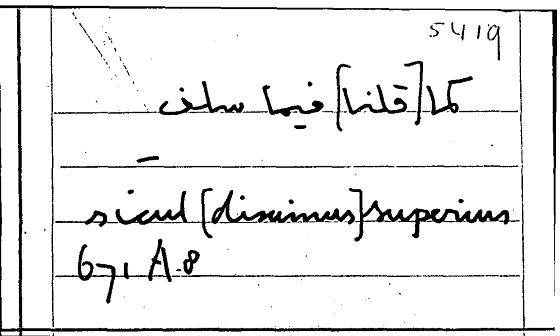 5419
كما [قلنا] فيما سلف
sicut [diximus] superius
671 A.8